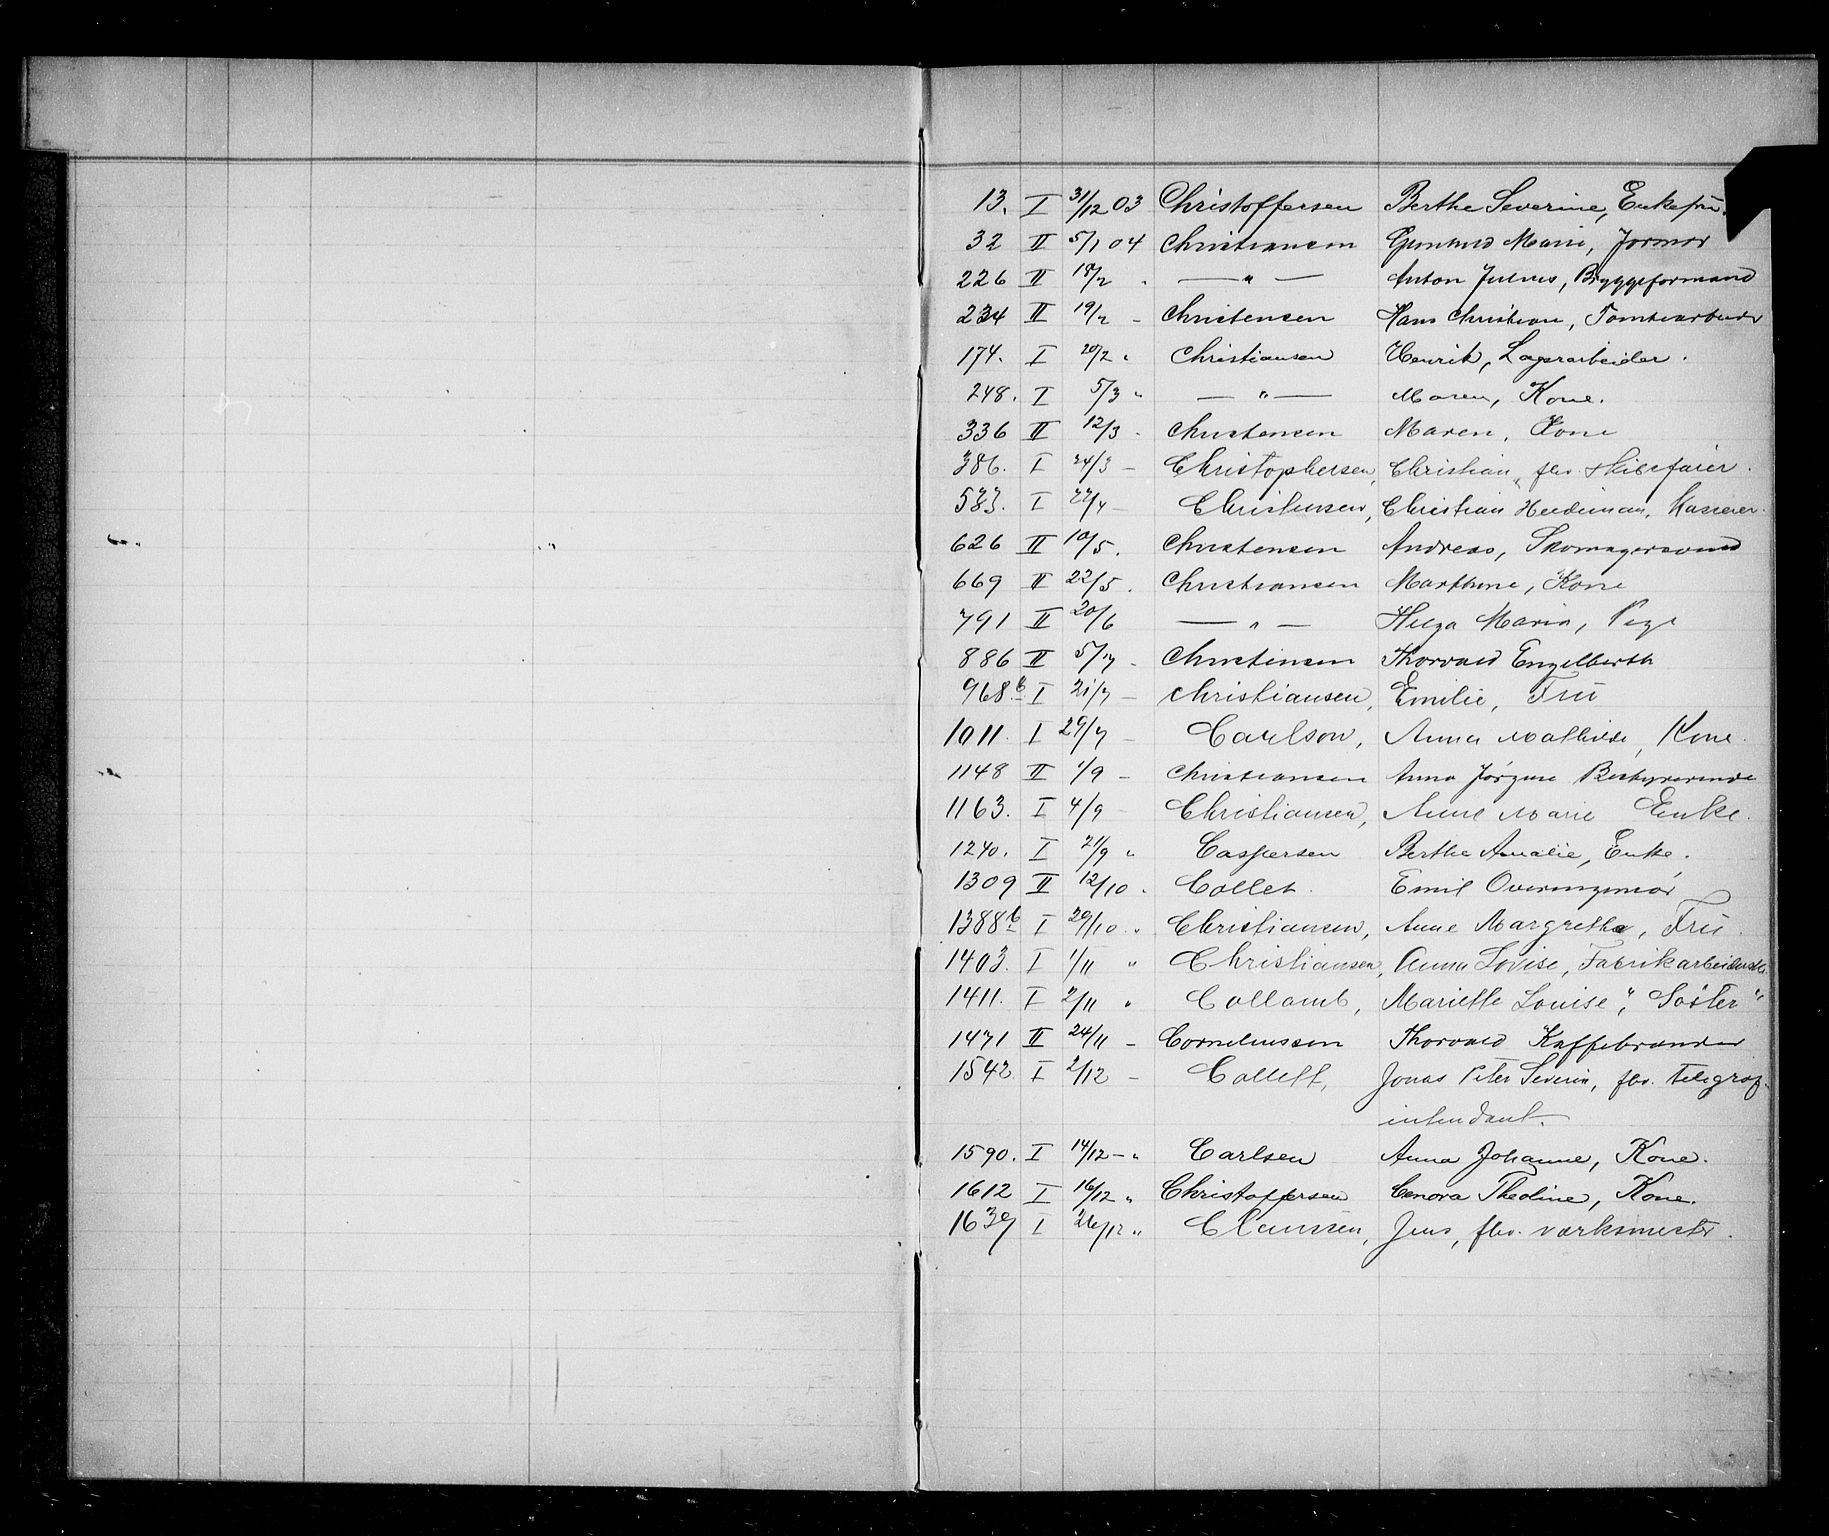 13. I 31/12 03 Christoffersen Berthe Severine, Enkefru.
32 II 5/1 04 Christiansen Gunhild Marie, Jormor
226 II 18/2 . — " — Anton Julius, Bryggeformand
234 II 19/2 - Christensen Hans Christian, Tomtearbeider
174. I 20/2 " Christiansen Henrik, Lagerarbeider.
248. I 5/3 " — " — Maren, Kone.
336 II 12/3 - Christensen Maren, Kone
386. I 24/3 - Christophersen, Christian, fhv. Skibsfører.
583. I 27/4 - Christensen, Christian, Kasserer.
626 II 10/5 . Christensen Andreas, Skomagersvend
669 II 22/5 . Christiansen Marthine, Kone
791 II 20/6 — " — Helga Maria, Pige
886 II 5/7 - Christensen Thorvald Engelberth
968 b I 21/7 - Christiansen, Emilie, Frü
1011 I 29/7 - Carlson, Anna Mathilde, Kone.
1148 II 1/9 - Christiansen Anna Jørgine Bestyrerinde
1163. I 4/9 - Christiansen, Anne Marie Enke.
1240. I 21/9 " Caspersen Berthe Amalie, Enke.
1309 II 12/10 . Collet. Emil Overingeniør
1388 b I 29/10 " Christiansen, Anne Margrethe, Frü.
1403. I 1/11 " Christiansen, Anna Lovise, Fabrikarbeiderske.
1411. I 2/11 " Collomb, Mariette Louise, "Søster"
1471 II 24/11 - Corneliussen Thorvald Kaffebrænder
1542. I 2/12 - Collett, Jonas Peter Severin, fhv. telegraf-
intendant.
1590. I 14/12 - " Carlsen Anna Johanne, Kone.
1612 I 16/12 " Christoffersen Cenora Theoline, Kone.
1639 I 26/12 " Claussen, Jens, fhv. værksmester.